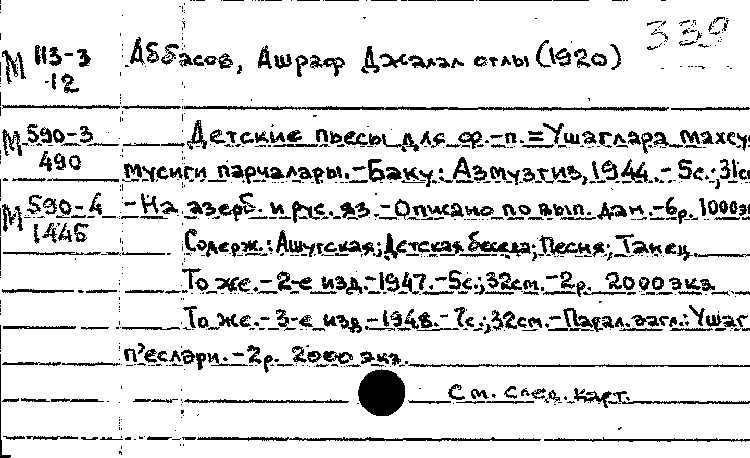 339
М 113-3 Аббасов, Ашраф Джалал оглы (1920)
12
М 590-3 Детские пьесы для ф.-п. = Ушаглара махсу
490 мусиги парчалары. - Баку: Азмузгиз, 1944. - 5с.; 31см
М 590-4 - На азерб. и рус. яз. - Описано по вып. дан. - 6р. 1000эк
1445 Содерж.: Ашугская; Детская беседа; Песня; Танец
То же. - 2-е изд. - 1947. - 5с.; 32см. - 2р. 2000 экз
То же. - 3-е изд. - 1948. - 7с.; 32см. - Парал. загл.: Ушаг
п'еслари. - 2р. 2000 экз.
См. след. карт.